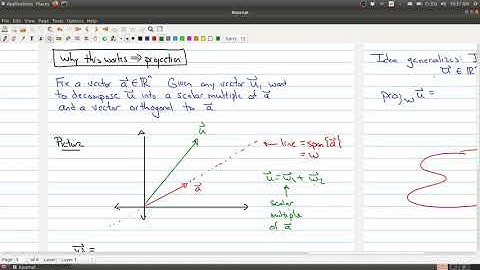 Applications Places
Xournal
File Edit View Journal Tools Options Help
Why this works ⇒ projection
Fix a vector a⃗ ∈ ℝⁿ Given any vector u⃗, want
to decompose u⃗ into a scalar multiple of a⃗
and a vector orthogonal to a⃗
Picture
u⃗
a⃗
← line = span{a⃗}
= W
u⃗ = w⃗₁ + w⃗₂
↑
scalar
multiple
of a⃗
Idea generalizes:
u⃗ ∈ ℝ
proj_W u⃗ =
Layer: Layer 1
Xournal